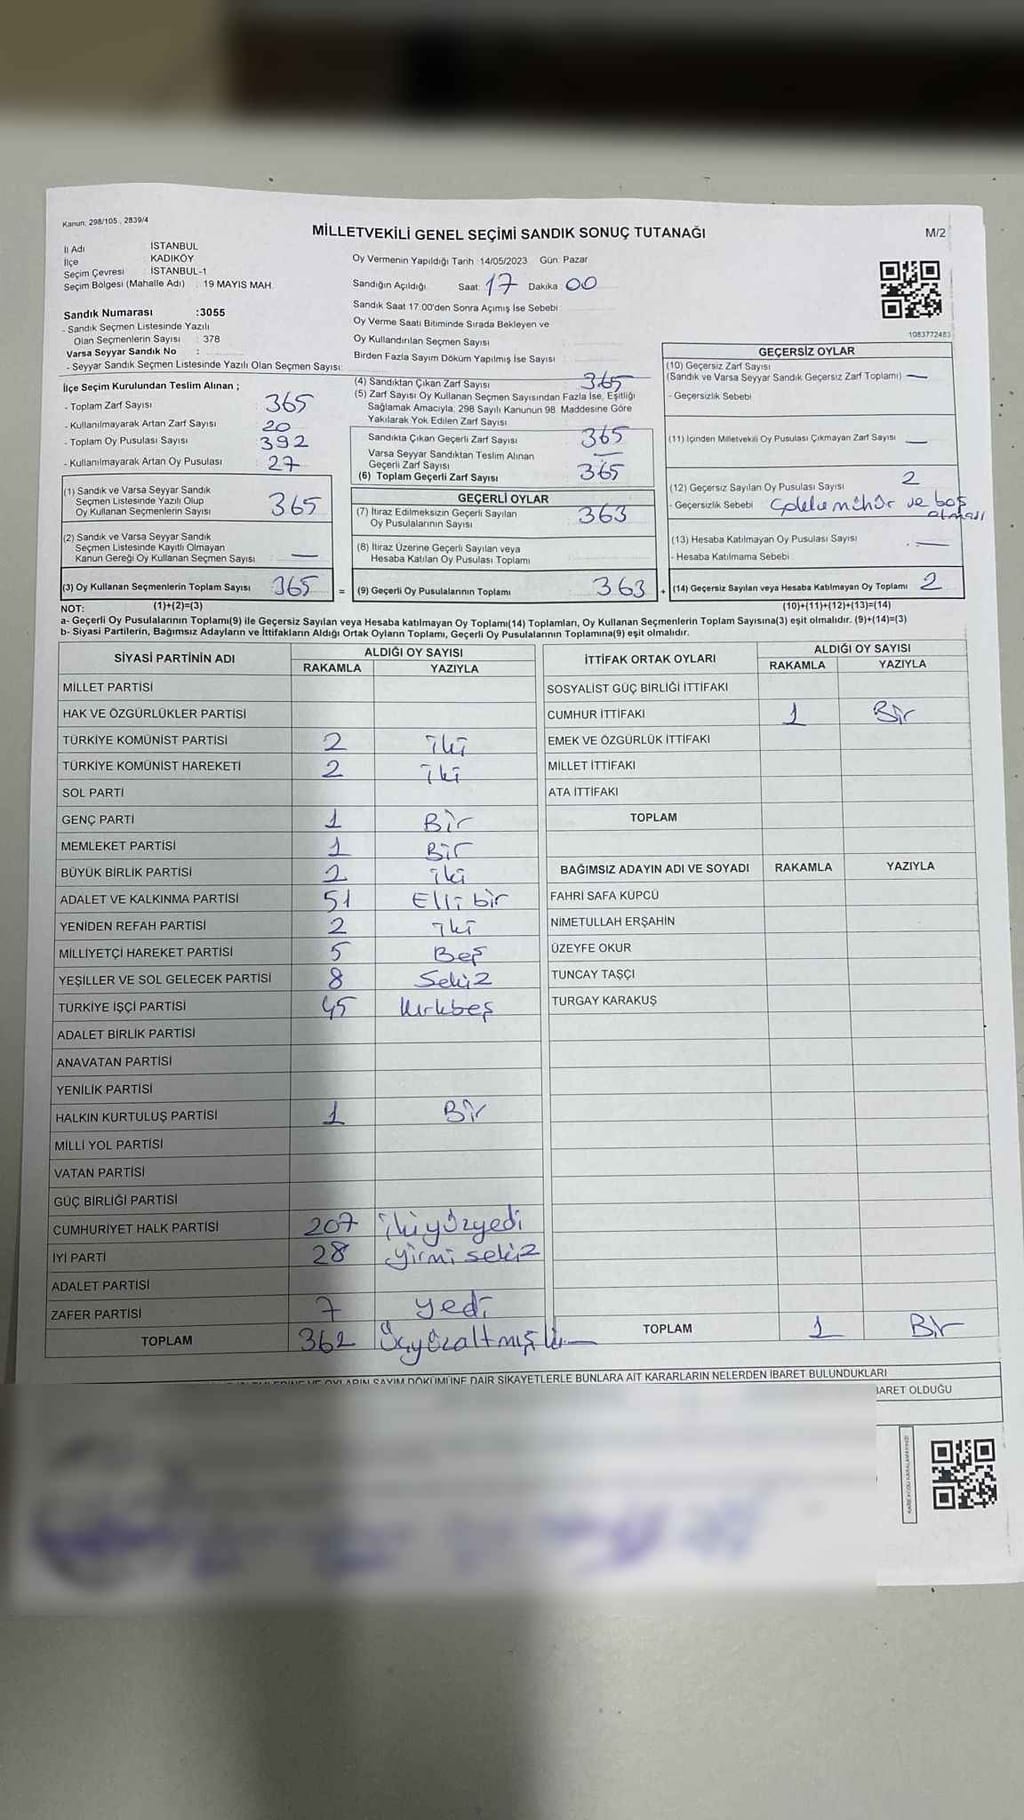 Kanun: 298/105 , 2839/4
MİLLETVEKİLİ GENEL SEÇİMİ SANDIK SONUÇ TUTANAĞI
M/2
İl Adı İSTANBUL
İlçe KADIKÖY
Seçim Çevresi İSTANBUL-1
Seçim Bölgesi (Mahalle Adı) : 19 MAYIS MAH.
Oy Vermenin Yapıldığı Tarih :14/05/2023 Gün: Pazar
Sandığın Açıldığı Saat: 17 Dakika 00
Sandık Saat 17:00'den Sonra Açımış İse Sebebi
Oy Verme Saati Bitiminde Sırada Bekleyen ve
Oy Kullandırılan Seçmen Sayısı
Birden Fazla Sayım Döküm Yapılmış İse Sayısı
1083772483
Sandık Numarası :3055
- Sandık Seçmen Listesinde Yazılı
Olan Seçmenlerin Sayısı : 378
Varsa Seyyar Sandık No :
- Seyyar Sandık Seçmen Listesinde Yazılı Olan Seçmen Sayısı:
İlçe Seçim Kurulundan Teslim Alınan ;
- Toplam Zarf Sayısı 365
- Kullanılmayarak Artan Zarf Sayısı 20
- Toplam Oy Pusulası Sayısı 392
- Kullanılmayarak Artan Oy Pusulası 27
(1) Sandık ve Varsa Seyyar Sandık
Seçmen Listesinde Yazılı Olup
Oy Kullanan Seçmenlerin Sayısı 365
(2) Sandık ve Varsa Seyyar Sandık
Seçmen Listesinde Kayıtlı Olmayan
Kanun Gereği Oy Kullanan Seçmen Sayısı —
(3) Oy Kullanan Seçmenlerin Toplam Sayısı 365 =
(4) Sandıktan Çıkan Zarf Sayısı 365
(5) Zarf Sayısı Oy Kullanan Seçmen Sayısından Fazla İse, Eşitliği
Sağlamak Amacıyla; 298 Sayılı Kanunun 98. Maddesine Göre
Yakılarak Yok Edilen Zarf Sayısı
Sandıkta Çıkan Geçerli Zarf Sayısı 365
Varsa Seyyar Sandıktan Teslim Alınan
Geçerli Zarf Sayısı —
(6) Toplam Geçerli Zarf Sayısı 365
GEÇERLİ OYLAR
(7) İtiraz Edilmeksizin Geçerli Sayılan
Oy Pusulalarının Sayısı 363
(8) İtiraz Üzerine Geçerli Sayılan veya
Hesaba Katılan Oy Pusulası Toplamı
(9) Geçerli Oy Pusulalarının Toplamı 363 +
GEÇERSİZ OYLAR
(10) Geçersiz Zarf Sayısı
(Sandık ve Varsa Seyyar Sandık Geçersiz Zarf Toplamı) —
- Geçersizlik Sebebi
(11) İçinden Milletvekili Oy Pusulası Çıkmayan Zarf Sayısı —
(12) Geçersiz Sayılan Oy Pusulası Sayısı 2
- Geçersizlik Sebebi mühür ve boş
olması
(13) Hesaba Katılmayan Oy Pusulası Sayısı —
- Hesaba Katılmama Sebebi
(14) Geçersiz Sayılan veya Hesaba Katılmayan Oy Toplamı 2
NOT: (1)+(2)=(3) (10)+(11)+(12)+(13)=(14)
a- Geçerli Oy Pusulalarının Toplamı(9) ile Geçersiz Sayılan veya Hesaba katılmayan Oy Toplamı(14) Toplamları, Oy Kullanan Seçmenlerin Toplam Sayısına(3) eşit olmalıdır. (9)+(14)=(3)
b- Siyasi Partilerin, Bağımsız Adayların ve İttifakların Aldığı Ortak Oyların Toplamı, Geçerli Oy Pusulalarının Toplamına(9) eşit olmalıdır.
SİYASİ PARTİNİN ADI ALDIĞI OY SAYISI
RAKAMLA YAZIYLA
MİLLET PARTİSİ
HAK VE ÖZGÜRLÜKLER PARTİSİ
TÜRKİYE KOMÜNİST PARTİSİ 2 iki
TÜRKİYE KOMÜNİST HAREKETİ 2 iki
SOL PARTİ
GENÇ PARTİ 1 Bir
MEMLEKET PARTİSİ 1 Bir
BÜYÜK BİRLİK PARTİSİ 2 iki
ADALET VE KALKINMA PARTİSİ 51 Elli bir
YENİDEN REFAH PARTİSİ 2 iki
MİLLİYETÇİ HAREKET PARTİSİ 5 Beş
YEŞİLLER VE SOL GELECEK PARTİSİ 8 Sekiz
TÜRKİYE İŞÇİ PARTİSİ 45 Kırkbeş
ADALET BİRLİK PARTİSİ
ANAVATAN PARTİSİ
YENİLİK PARTİSİ
HALKIN KURTULUŞ PARTİSİ 1 Bir
MİLLİ YOL PARTİSİ
VATAN PARTİSİ
GÜÇ BİRLİĞİ PARTİSİ
CUMHURİYET HALK PARTİSİ 207 ikiyüzyedi
İYİ PARTİ 28 yirmi sekiz
ADALET PARTİSİ
ZAFER PARTİSİ 7 yedi
TOPLAM 362
İTTİFAK ORTAK OYLARI ALDIĞI OY SAYISI
RAKAMLA YAZIYLA
SOSYALİST GÜÇ BİRLİĞİ İTTİFAKI
CUMHUR İTTİFAKI 1 Bir
EMEK VE ÖZGÜRLÜK İTTİFAKI
MİLLET İTTİFAKI
ATA İTTİFAKI
TOPLAM
BAĞIMSIZ ADAYIN ADI VE SOYADI RAKAMLA YAZIYLA
FAHRİ SAFA KÜPCÜ
NİMETULLAH ERŞAHİN
ÜZEYFE OKUR
TUNCAY TAŞÇI
TURGAY KARAKUŞ
TOPLAM 1 Bir
OYLARIN SAYIM DÖKÜMÜNE DAİR ŞİKAYETLERLE BUNLARA AİT KARARLARIN NELERDEN İBARET BULUNDUKLARI
İBARET OLDUĞU